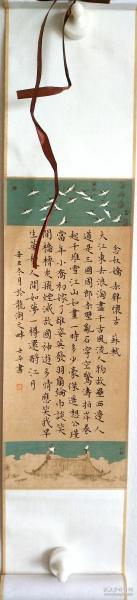 念奴嬌 赤壁懷古 蘇軾
大江東去浪淘盡千古風流人物故壘西邊人
道是三國周郎赤壁亂石穿空驚濤拍岸卷
起千堆雪江山如畫一時多少豪傑遙想公瑾
當年小喬初嫁了雄姿英發羽扇綸巾談笑
間檣櫓灰飛煙滅故國神遊多情應笑我早
生華人間如夢一樽還酹江月
辛丑冬月於龍湖之畔 書